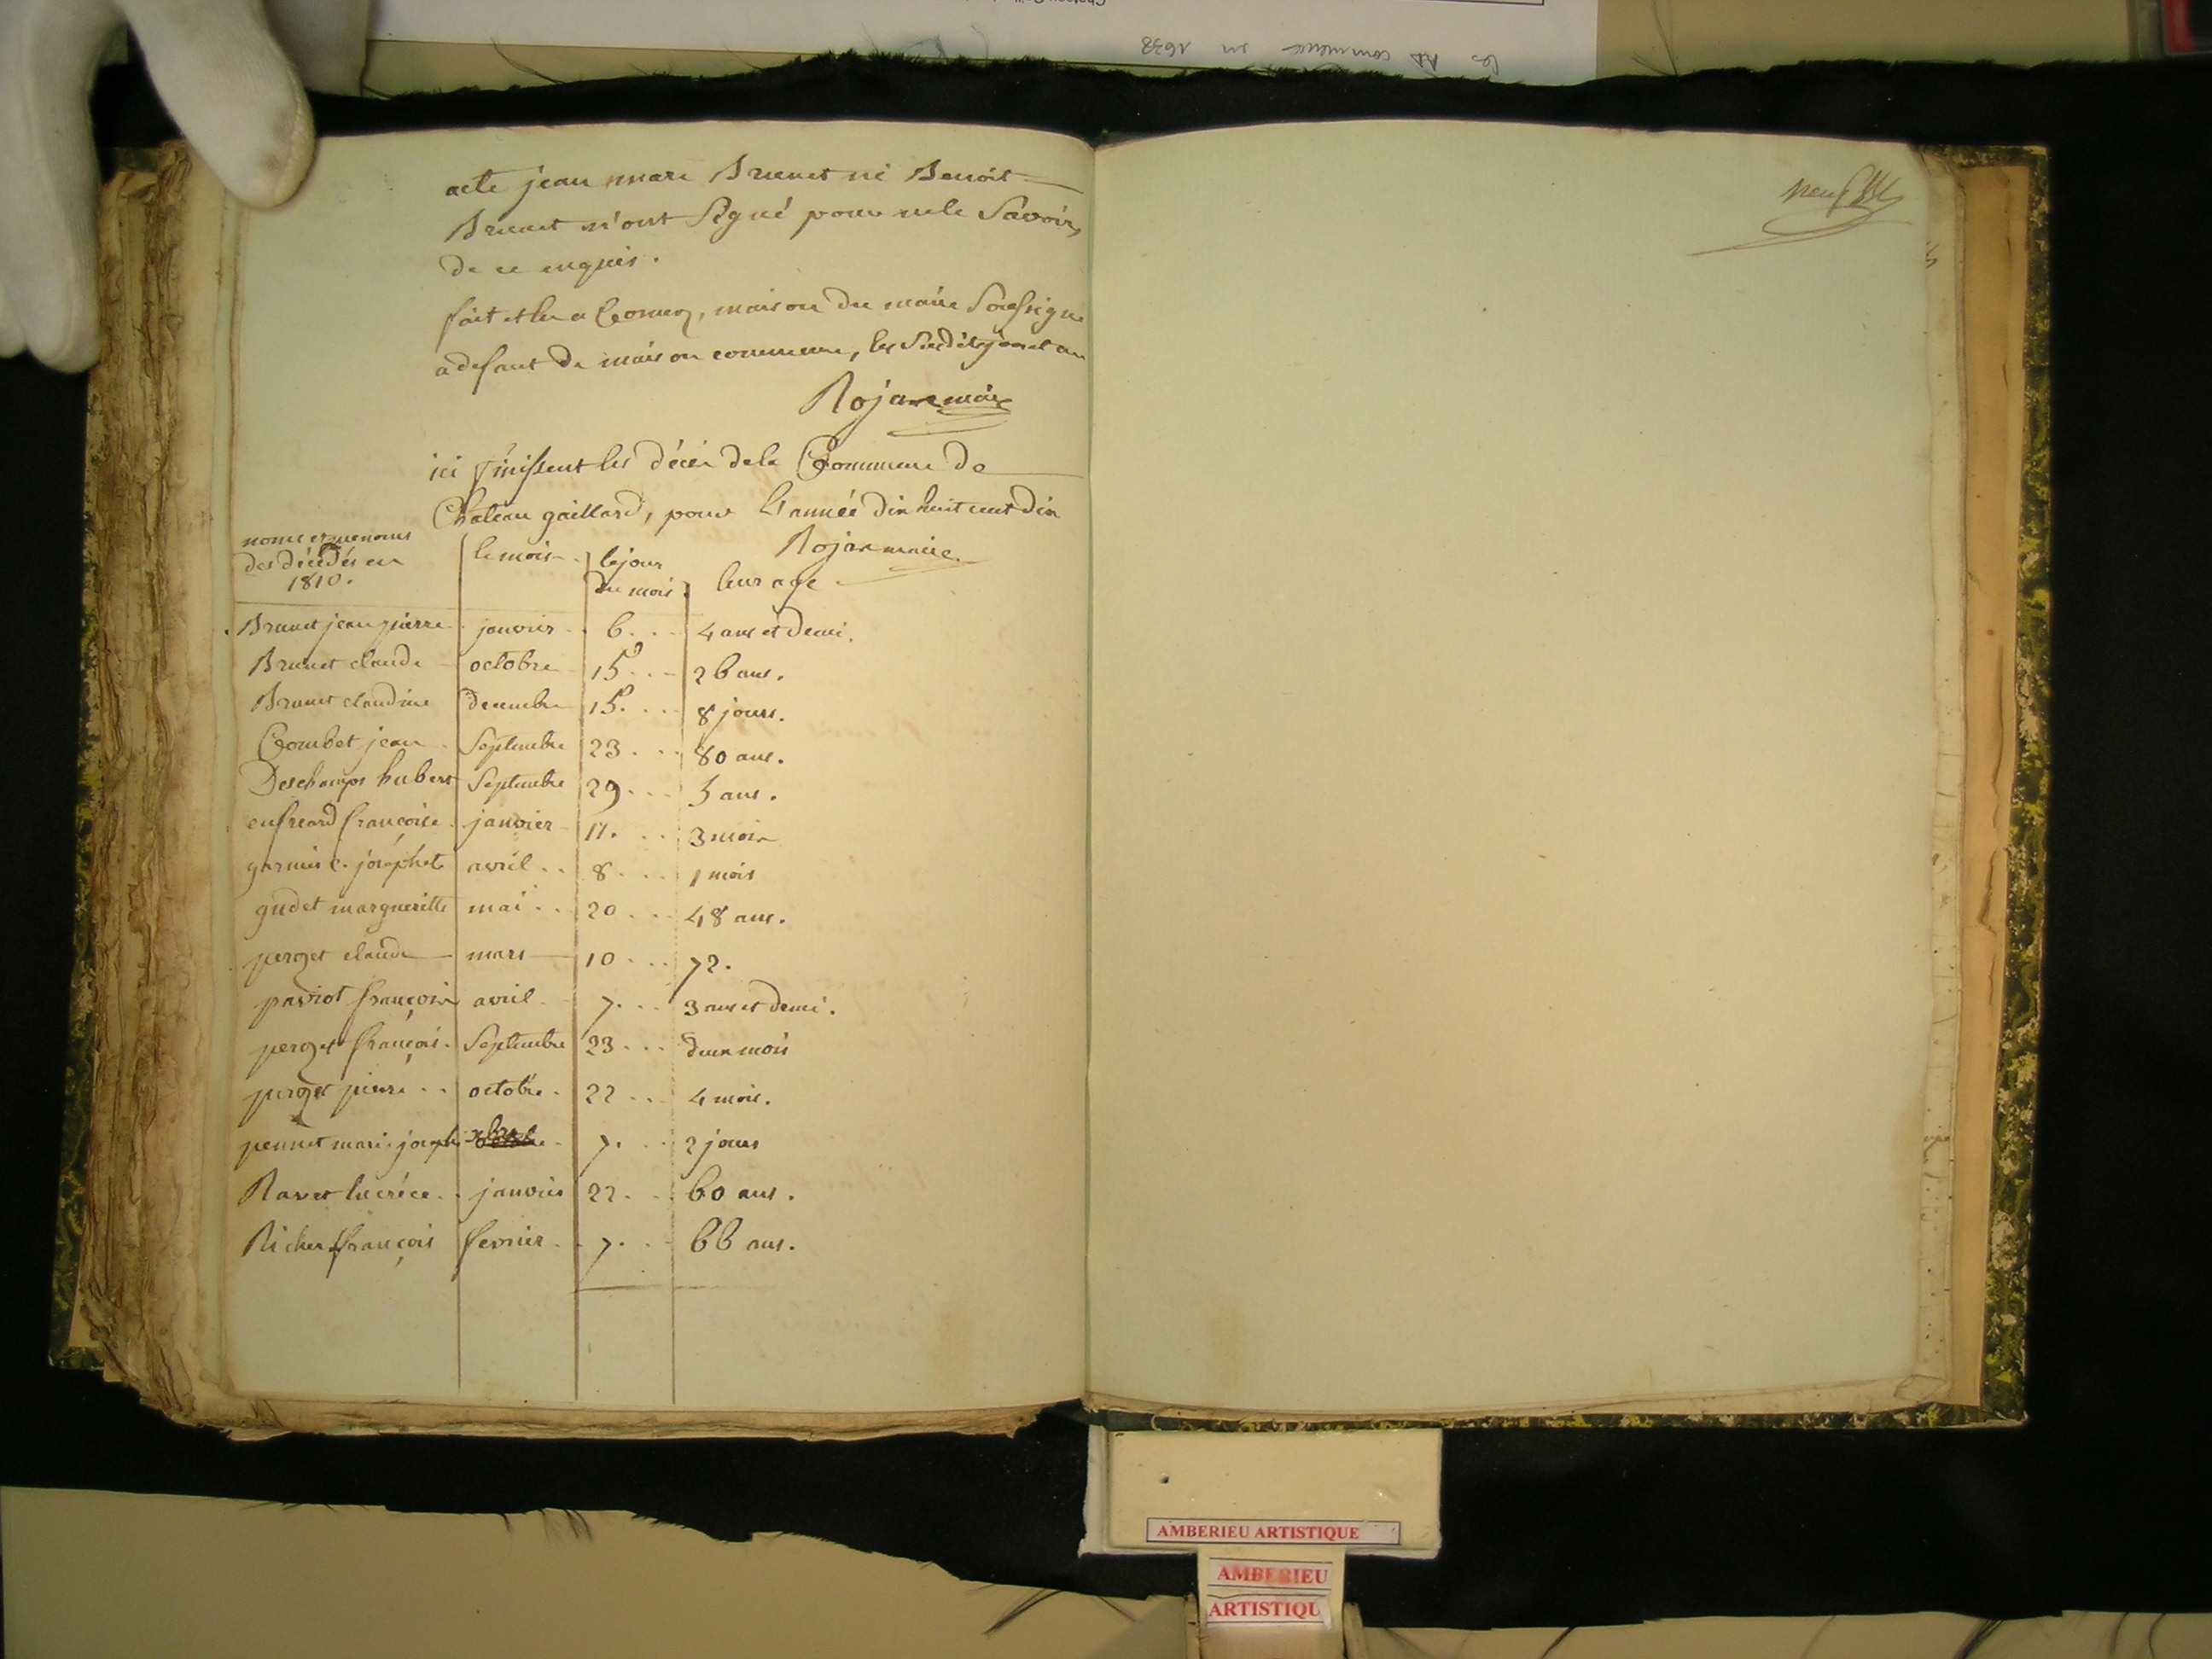 les AD commence en 1638
acte jean marc Brunet ni Benoit
Brunet n'ont Signé pour ne le Savoir
de ce enquis.
fait et lu a Cormoz, maison du maire Soussigné
a defaut de maison commune, les Susdits jour et an
Rojat maire
ici finissent les décès de la Commune de
Chateau gaillard, pour L'année dix huit cent dix
Rojat maire
noms et prenoms
des décédés en
1810.
le mois
le jour
du mois
leur age
Brunet jean pierre janvier 6 4 ans et demi.
Brunet claude octobre 15 26 ans.
Brunet claudine decembre 15 8 jours.
Combet jean Septembre 23 80 ans.
Deschamps hubert Septembre 29 5 ans.
françoise janvier 11 3 mois
josephete avril 8 1 mois
gudet margueritte mai 20 48 ans.
perget claude mars 10 72.
paviot françois avril 7 3 ans et demi.
perget françois Septembre 23 deux mois
perget pierre octobre 22 4 mois.
pennet marie joseph 7 2 jours
Ravet lucréce janvier 22 60 ans.
Richer françois fevrier 7 66 ans.
neuf
AMBERIEU ARTISTIQUE
AMBERIEU
ARTISTIQU